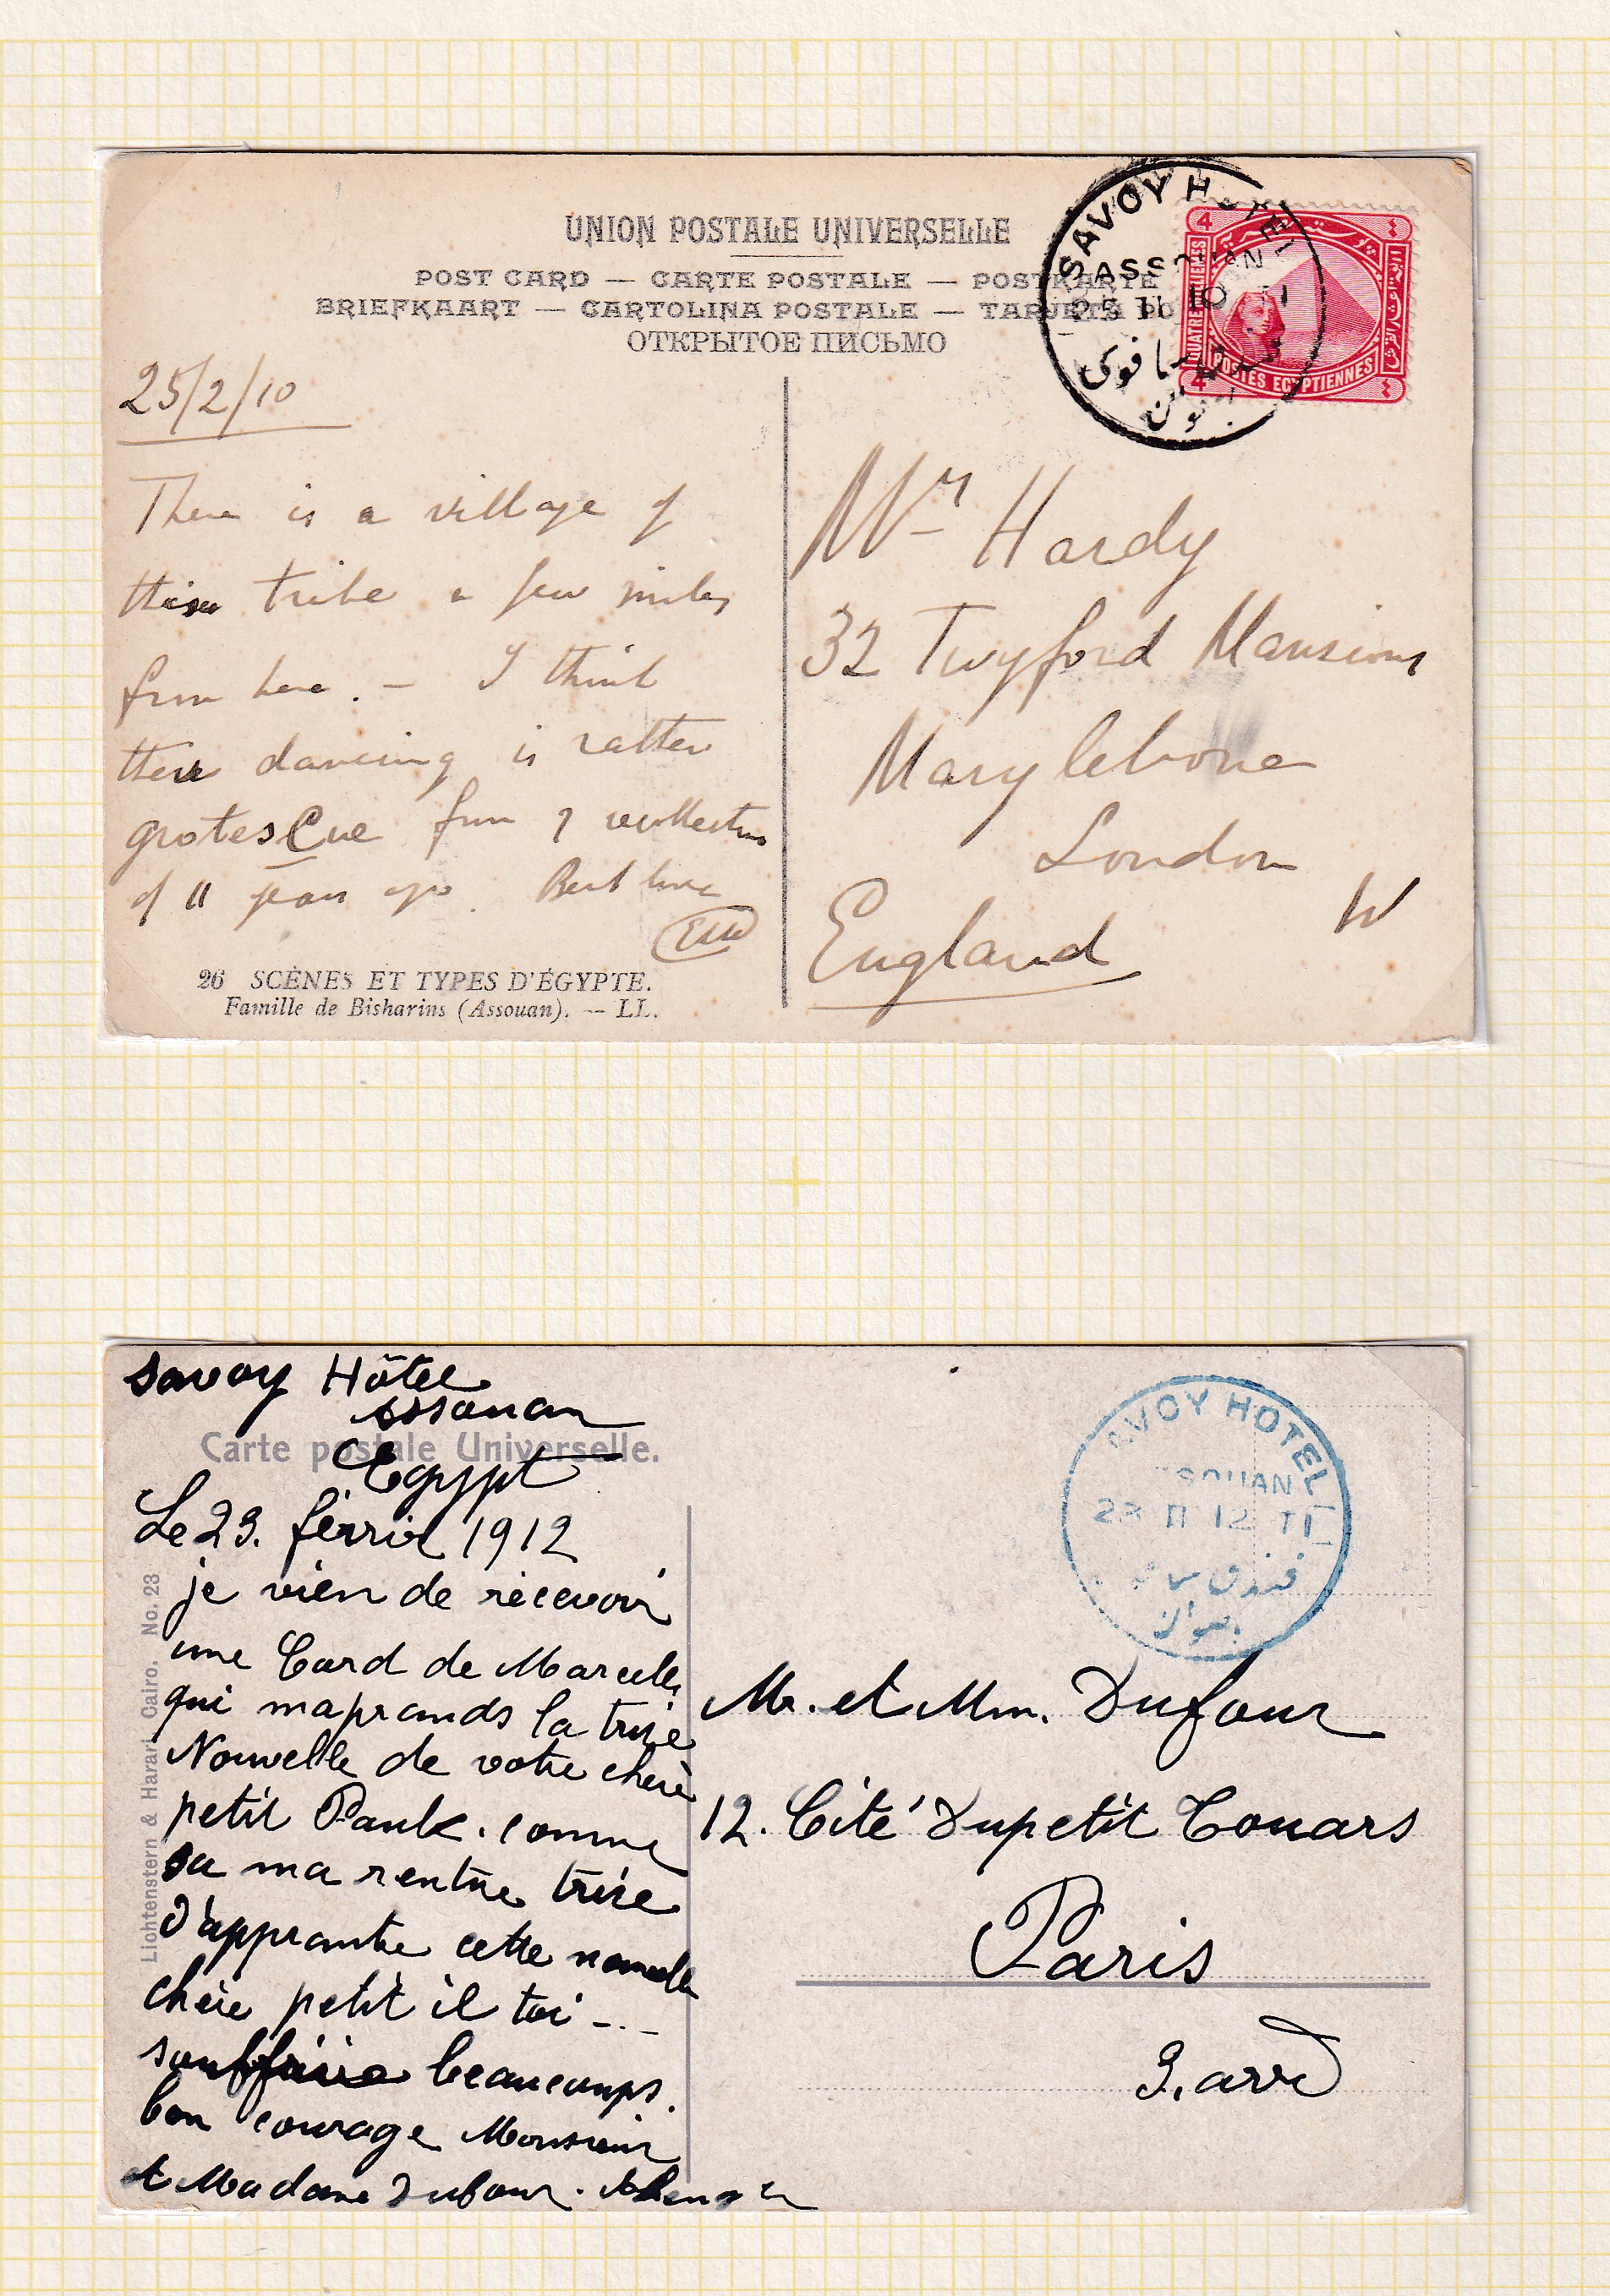 UNION POSTALE UNIVERSELLE
POST CARD — CARTE POSTALE — POSTKARTE
BRIEFKAART — CARTOLINA POSTALE — TARJETA PO
ОТКРЫТОЕ ПИСЬМО
SAVOY HOTEL
ASSOUAN
25 II 10
4
QUATRE
POSTES EGYPTIENNES
4
25/2/10
There is a village of
these tribe a few miles
from here. – I think
their dancing is rather
grotesCue from my recollections
of 11 years ago. Best love
EW
26 SCÈNES ET TYPES D'ÉGYPTE.
Famille de Bisharins (Assouan). — LL.
Mr Hardy
32 Twyford Mansions
Marylebone
London
W
England
Savoy Hôtel
Assouan
Egypt
Carte postale Universelle.
Le 23. février 1912
je vien de recevoir
une Card de Marcelle
qui maprands la trise
Nouvelle de votre chere
petit Paule. comme
sa ma rentre trise
d'apprantre cette nouvelle
chere petit il toi - . . -
souffrire beaucoups.
bon courage Monsieur
et Madame Dufour.
Lichtenstern & Harari, Cairo. No. 23
AVOY HOTEL
SOUAN
23 II 12 T1
فندق
باسوان
Mr. et Mm. Dufour
12. Cité Dupetit Touars
Paris
3. arrd